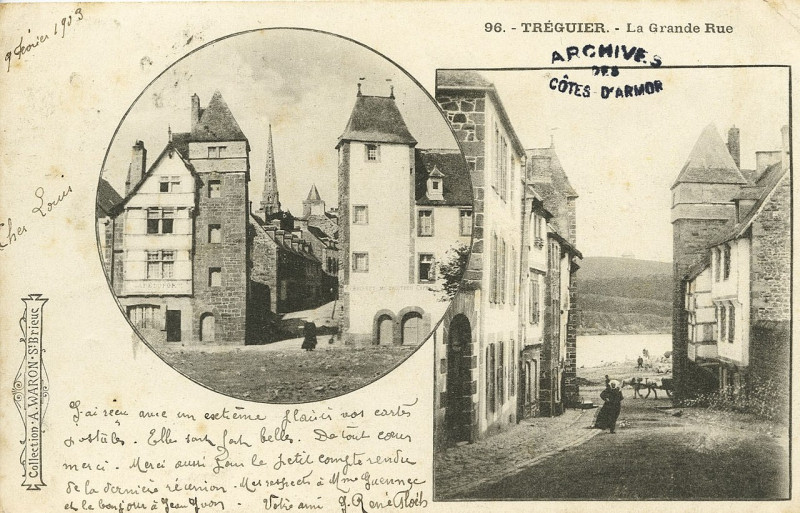 9 février 1903
96. - TRÉGUIER. - La Grande Rue
ARCHIVES
DES
CÔTES-D'ARMOR
Cher Louis
Collection A. WARON - St Brieuc
J'ai reçu avec un extême plaisir vos cartes
postales. Elle sont fort belles. De tout cœur
merci. Merci aussi pour le petit compte rendu
de la dernière réunion. Mes respects à Mme Guennec
et le bonjour à Jean Yvon. Votre ami J. René